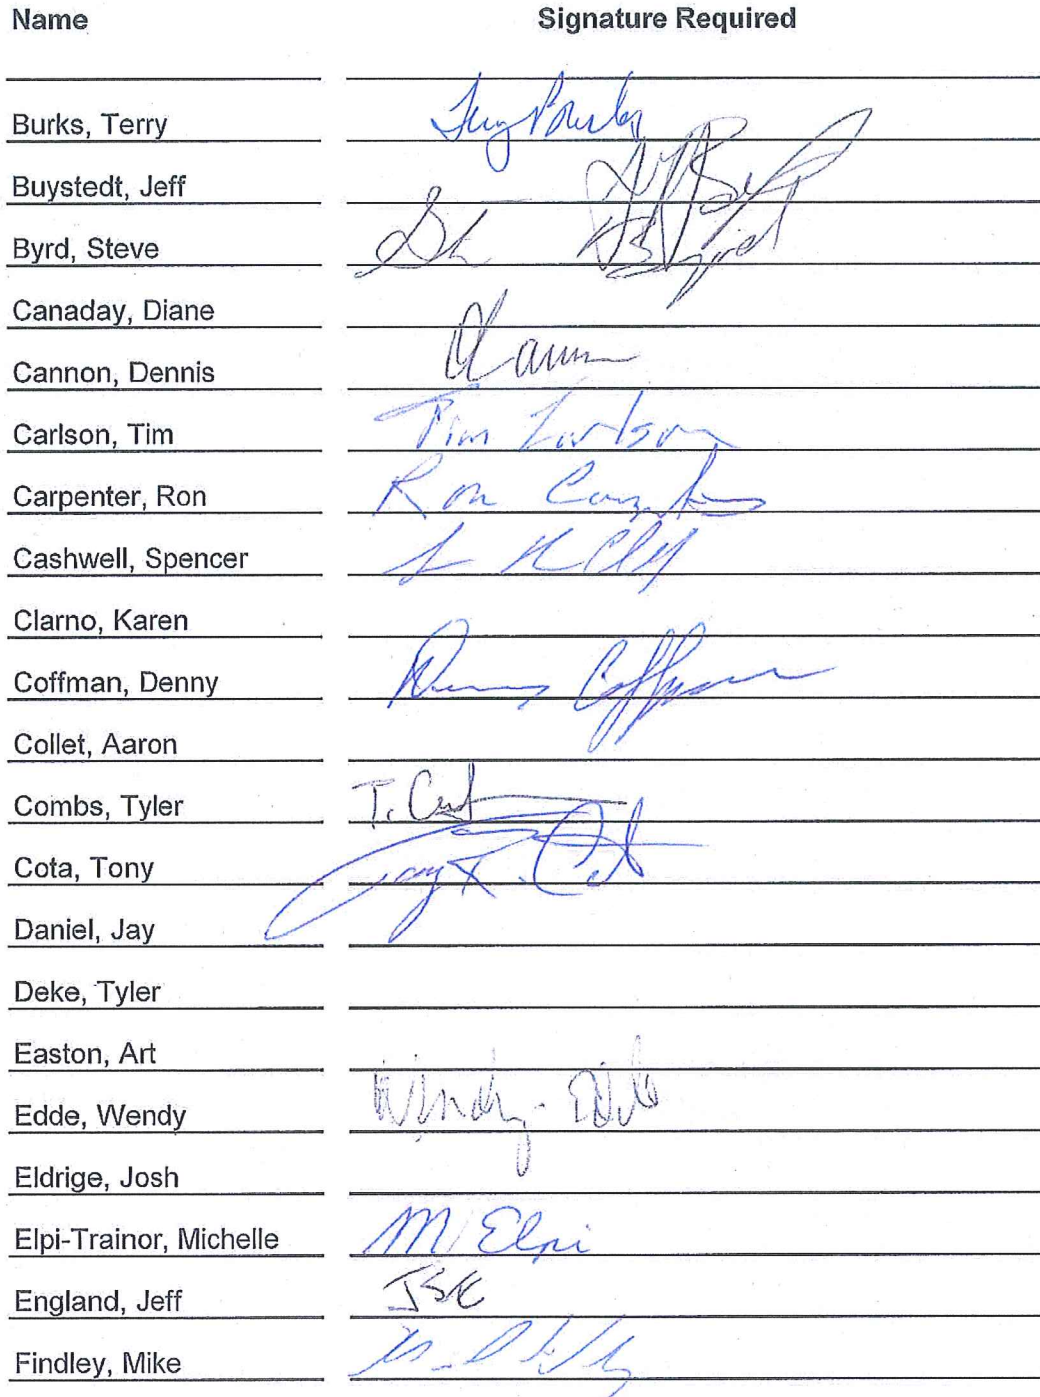 Name Signature Required
Burks, Terry Terry Burks
Buystedt, Jeff
Byrd, Steve Byrd
Canaday, Diane
Cannon, Dennis
Carlson, Tim Tim Carlson
Carpenter, Ron Ron
Cashwell, Spencer
Clarno, Karen
Coffman, Denny Coffman
Collet, Aaron
Combs, Tyler T.
Cota, Tony
Daniel, Jay
Deke, Tyler
Easton, Art
Edde, Wendy Wendy Edde
Eldrige, Josh
Elpi-Trainor, Michelle M Elpi
England, Jeff JSE
Findley, Mike